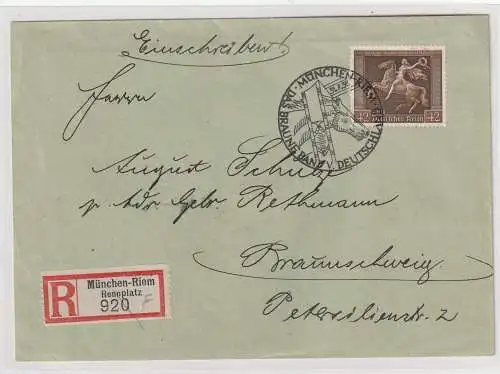 Einschreiben!
Herrn
August Schulze
p. Adr. Gebr. Rethmann
Braunschweig.
Petersilienstr. 2
MÜNCHEN-RIEM
DAS BRAUNE BAND V. DEUTSCHLAND
42 Deutsches Reich 42
R
München-Riem
Rennplatz
920